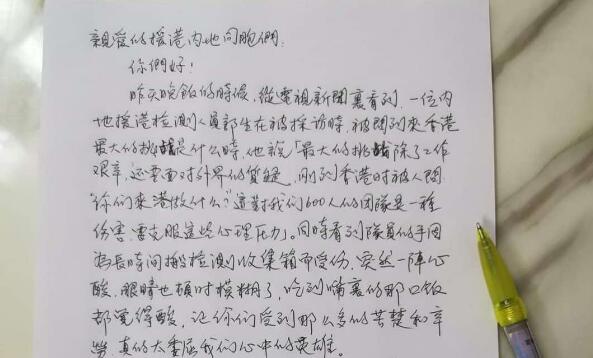 親愛的援港內地同胞們：
你們好！
昨天晚飯的時候，從電視新聞裏看到，一位內
地援港檢測人員郭生在被採訪時，被問到來香港
最大的挑戰是什么時，他說「最大的挑戰除了工作
艰辛，还要面对外界的質疑，剛到香港时被人問
“你们來港做什么？”這對我們600人的團隊是一種
伤害，需克服這些心理压力」。同時看到隊員的手因
為長時間搬检测收集箱而受伤，突然一陣心
酸，眼睛也頓时模糊了，吃到嘴裏的那口飯
都覺得酸，让你们受到那么多的苦楚和辛
勞，真的太委屈我們心中的英雄。